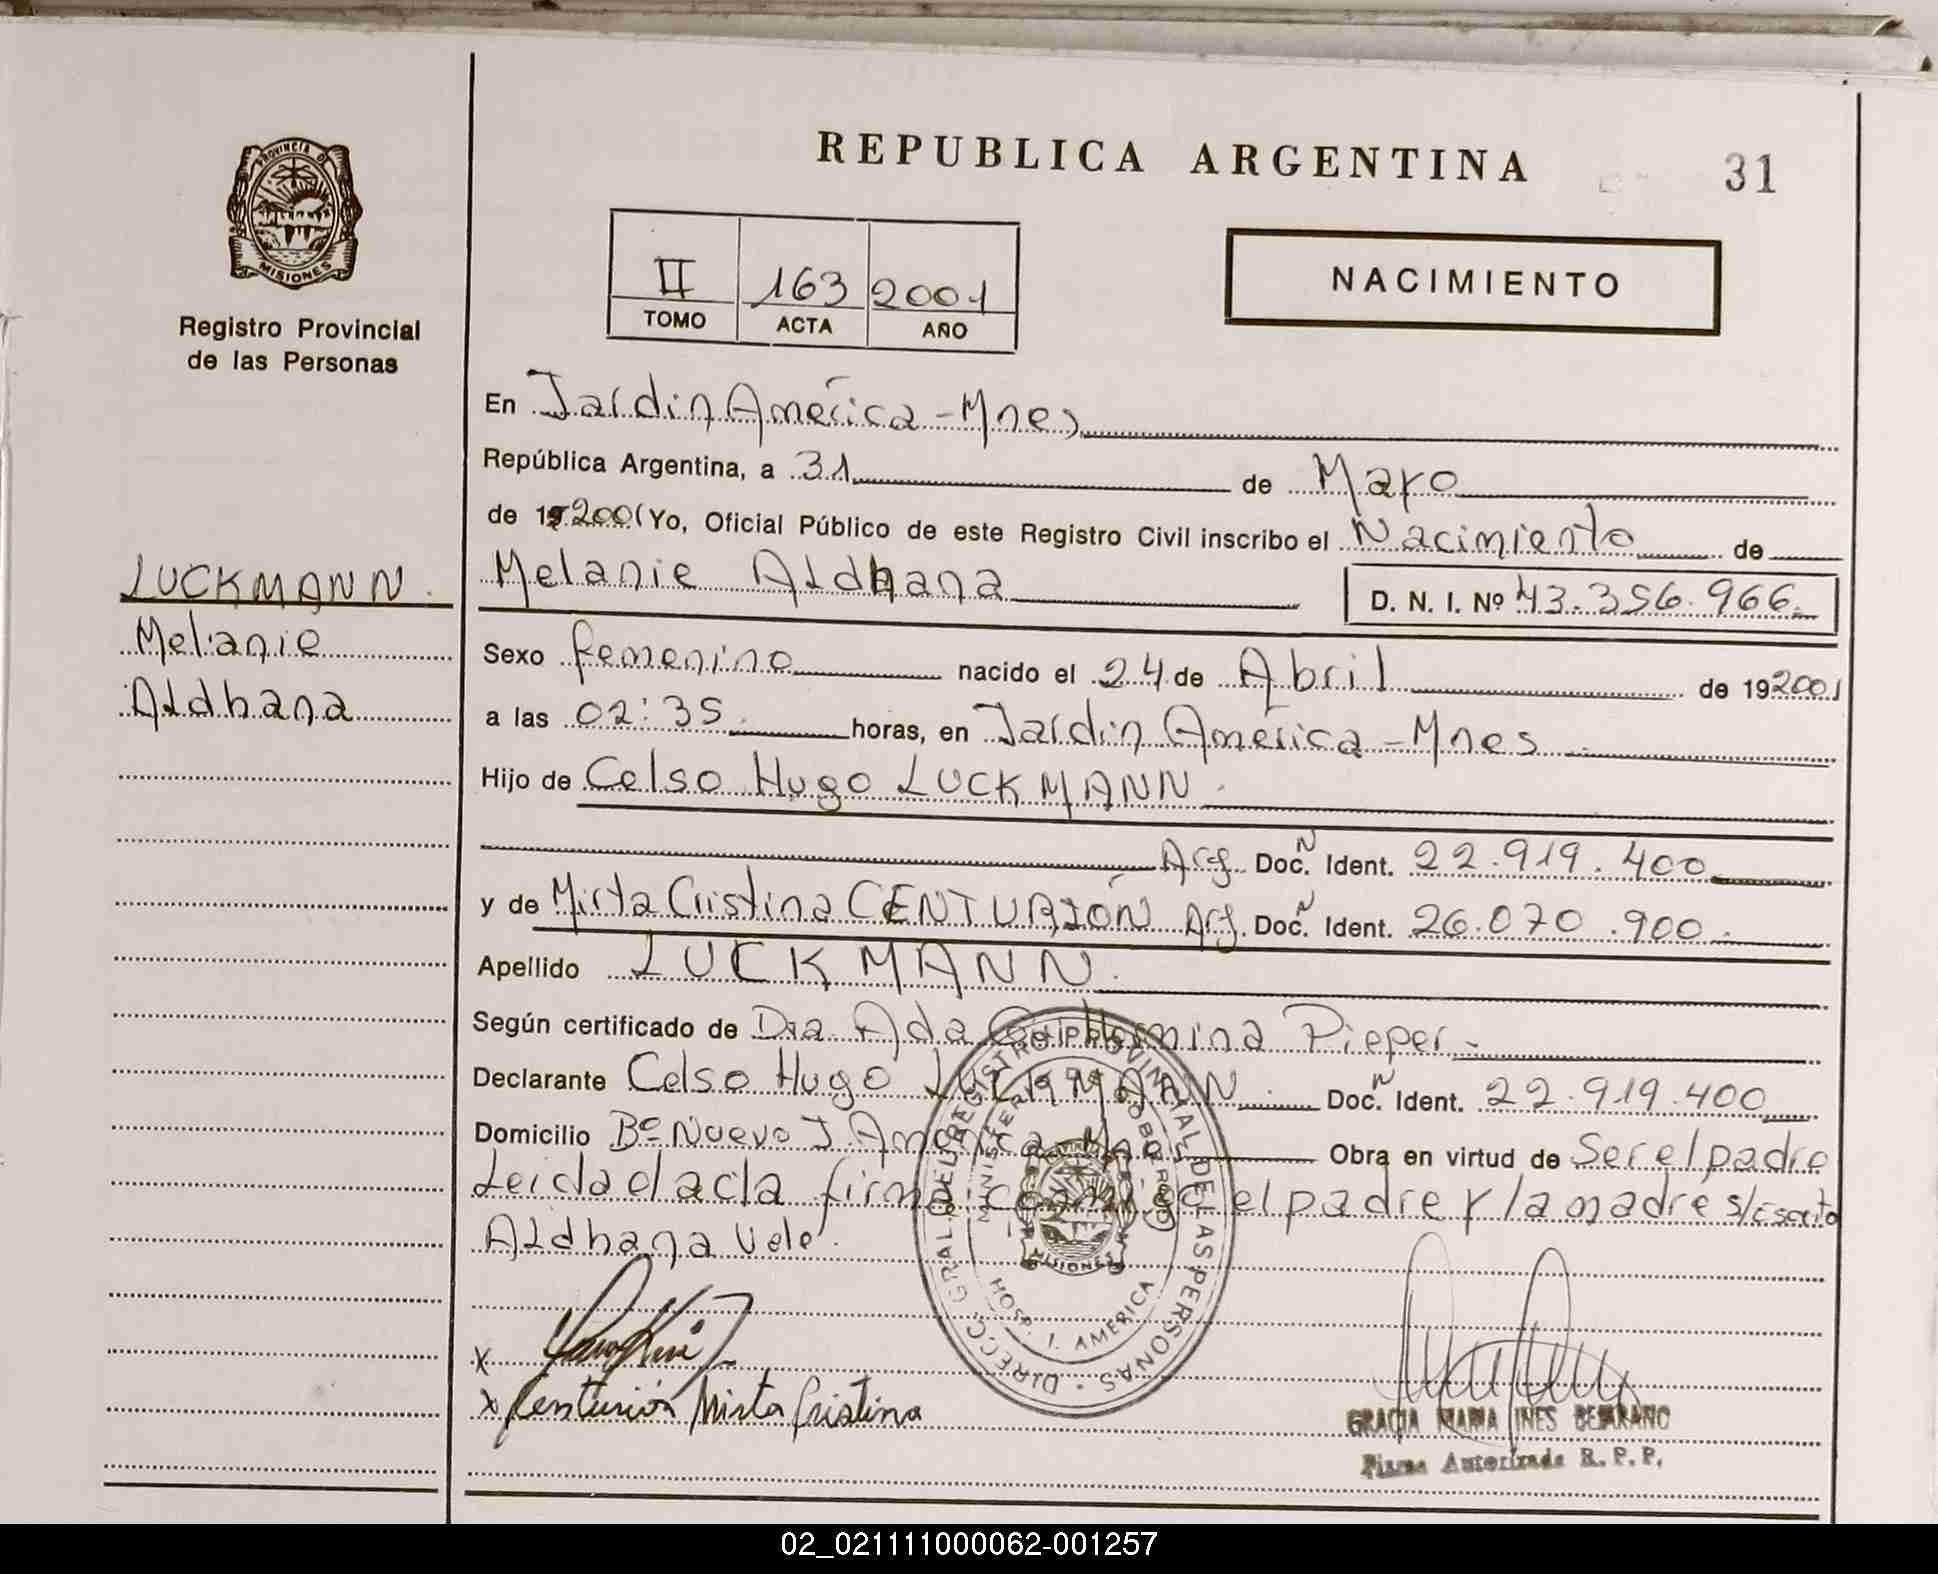 REPUBLICA ARGENTINA
31
PROVINCIA D
MISIONES
Registro Provincial
de las Personas
II 163 2001
TOMO ACTA AÑO
NACIMIENTO
En Jardin América - Mnes
República Argentina, a 31 de Mayo
de 19 2001 Yo, Oficial Público de este Registro Civil inscribo el Nacimiento de
LUCKMANN.
Melanie
Aldhana
Melanie Aldhana D. N. I. Nº 43.356.966.
Sexo femenino nacido el 24 de Abril de 19 2001
a las 02:35 horas, en Jardin América - Mnes
Hijo de Celso Hugo LUCKMANN.
Arg. Doc. N Ident. 22.919.400
y de Mirta Cristina CENTURIÓN Arg. Doc. N Ident. 26.070.900.
Apellido LUCKMANN.
Según certificado de Dra. Ada Pieper.
Declarante Celso Hugo LUCKMANN. Doc. N Ident. 22.919.400
Domicilio Bº Nuevo J. América Obra en virtud de Ser el padre
Leida el acta firma conmigo el padre y la madre s/Escrito
Aldhana Vale.
DIRECC. GRAL. DEL REGISTRO PROVINCIAL DE LAS PERSONAS
MINISTERIO DE GOBIERNO
MISIONES
HOSP. J. AMERICA
x
x Centurión Mirta Cristina
GRACIA MARIA INES BEJARANO
Firma Autorizada R. P. P.
02_021111000062-001257